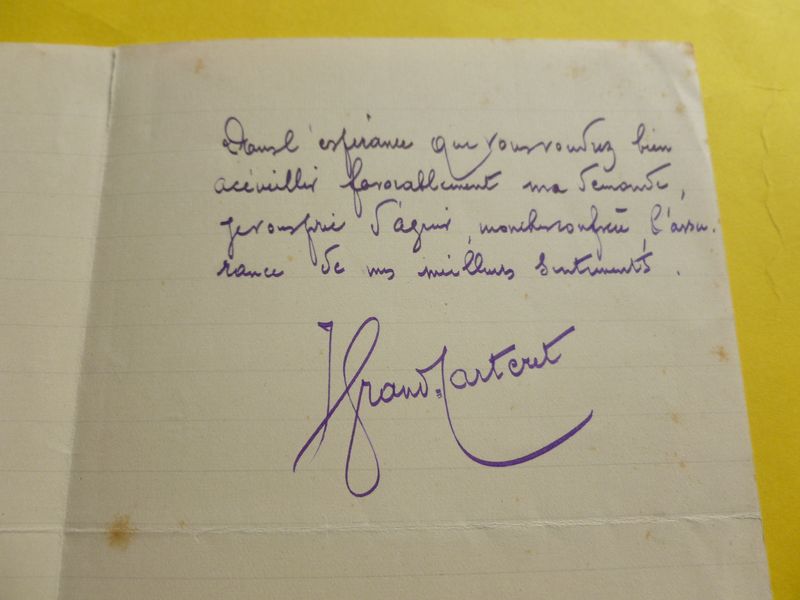 Dans l'espérance que vous voudrez bien
accueillir favorablement ma demande,
je vous prie d'agréer, mon cher confrère l'assu-
rance de mes meilleurs sentiments.
J Grand-Carteret